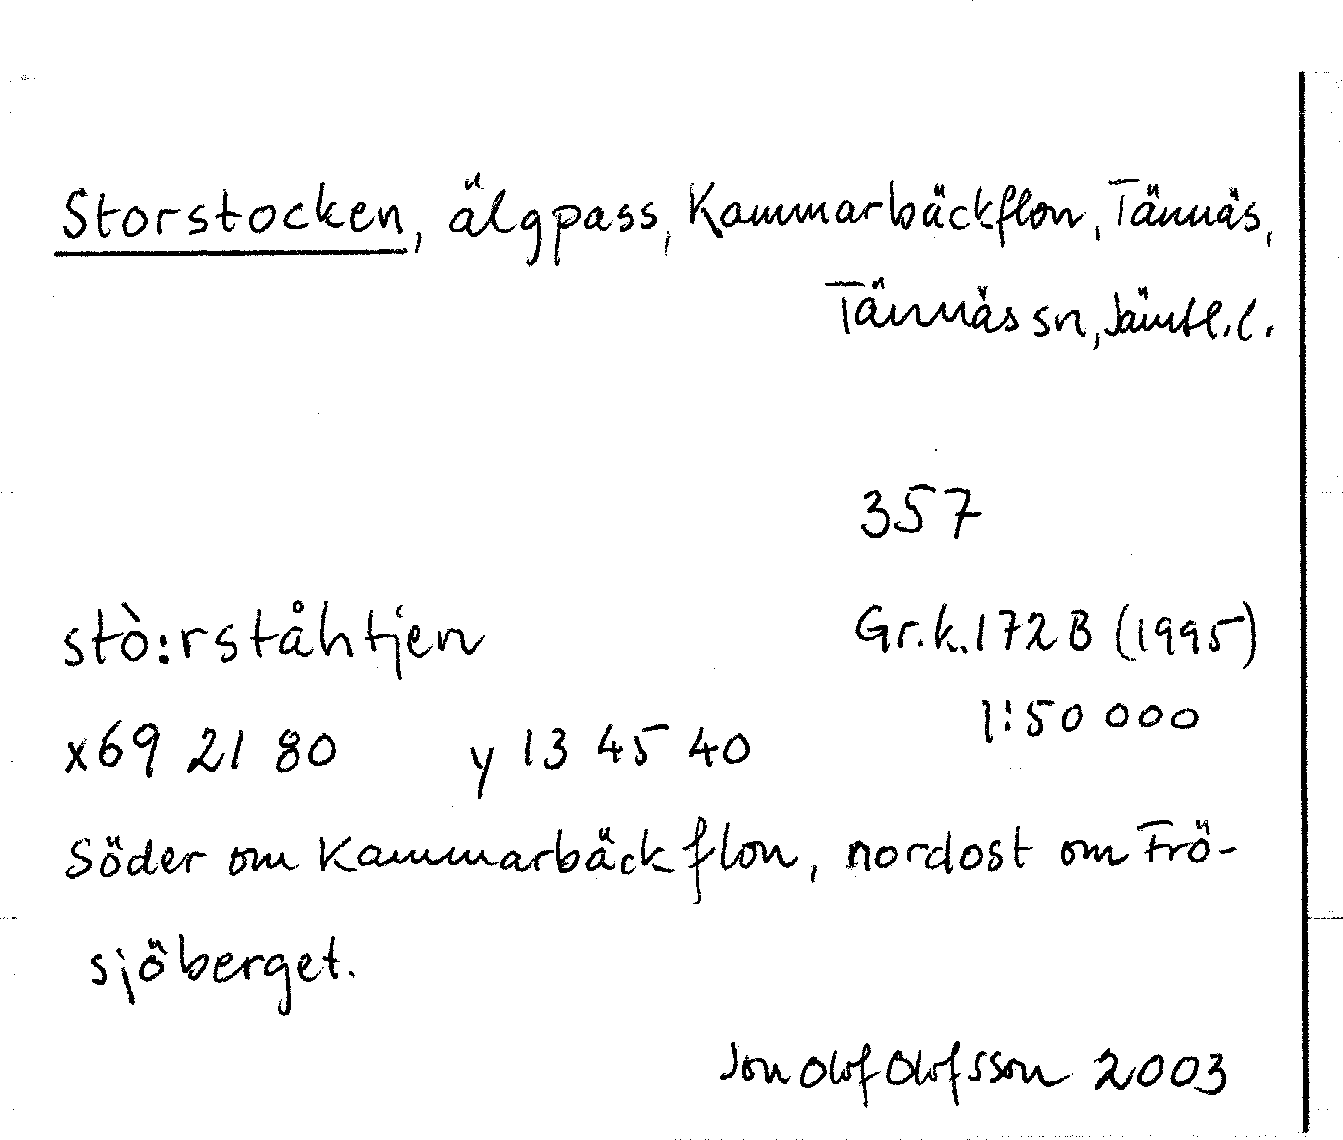 Storstocken, älgpass, Kammarbäckflon, Tännäs,
Tännäs sn, Jämtl.l.
357
stò:rståhtjen
Gr.k.172B (1995)
1:50 000
x69 21 80 y 13 45 40
Söder om Kammarbäckflon, nordost om Frö-
sjöberget.
Jon Olof Olofsson 2003